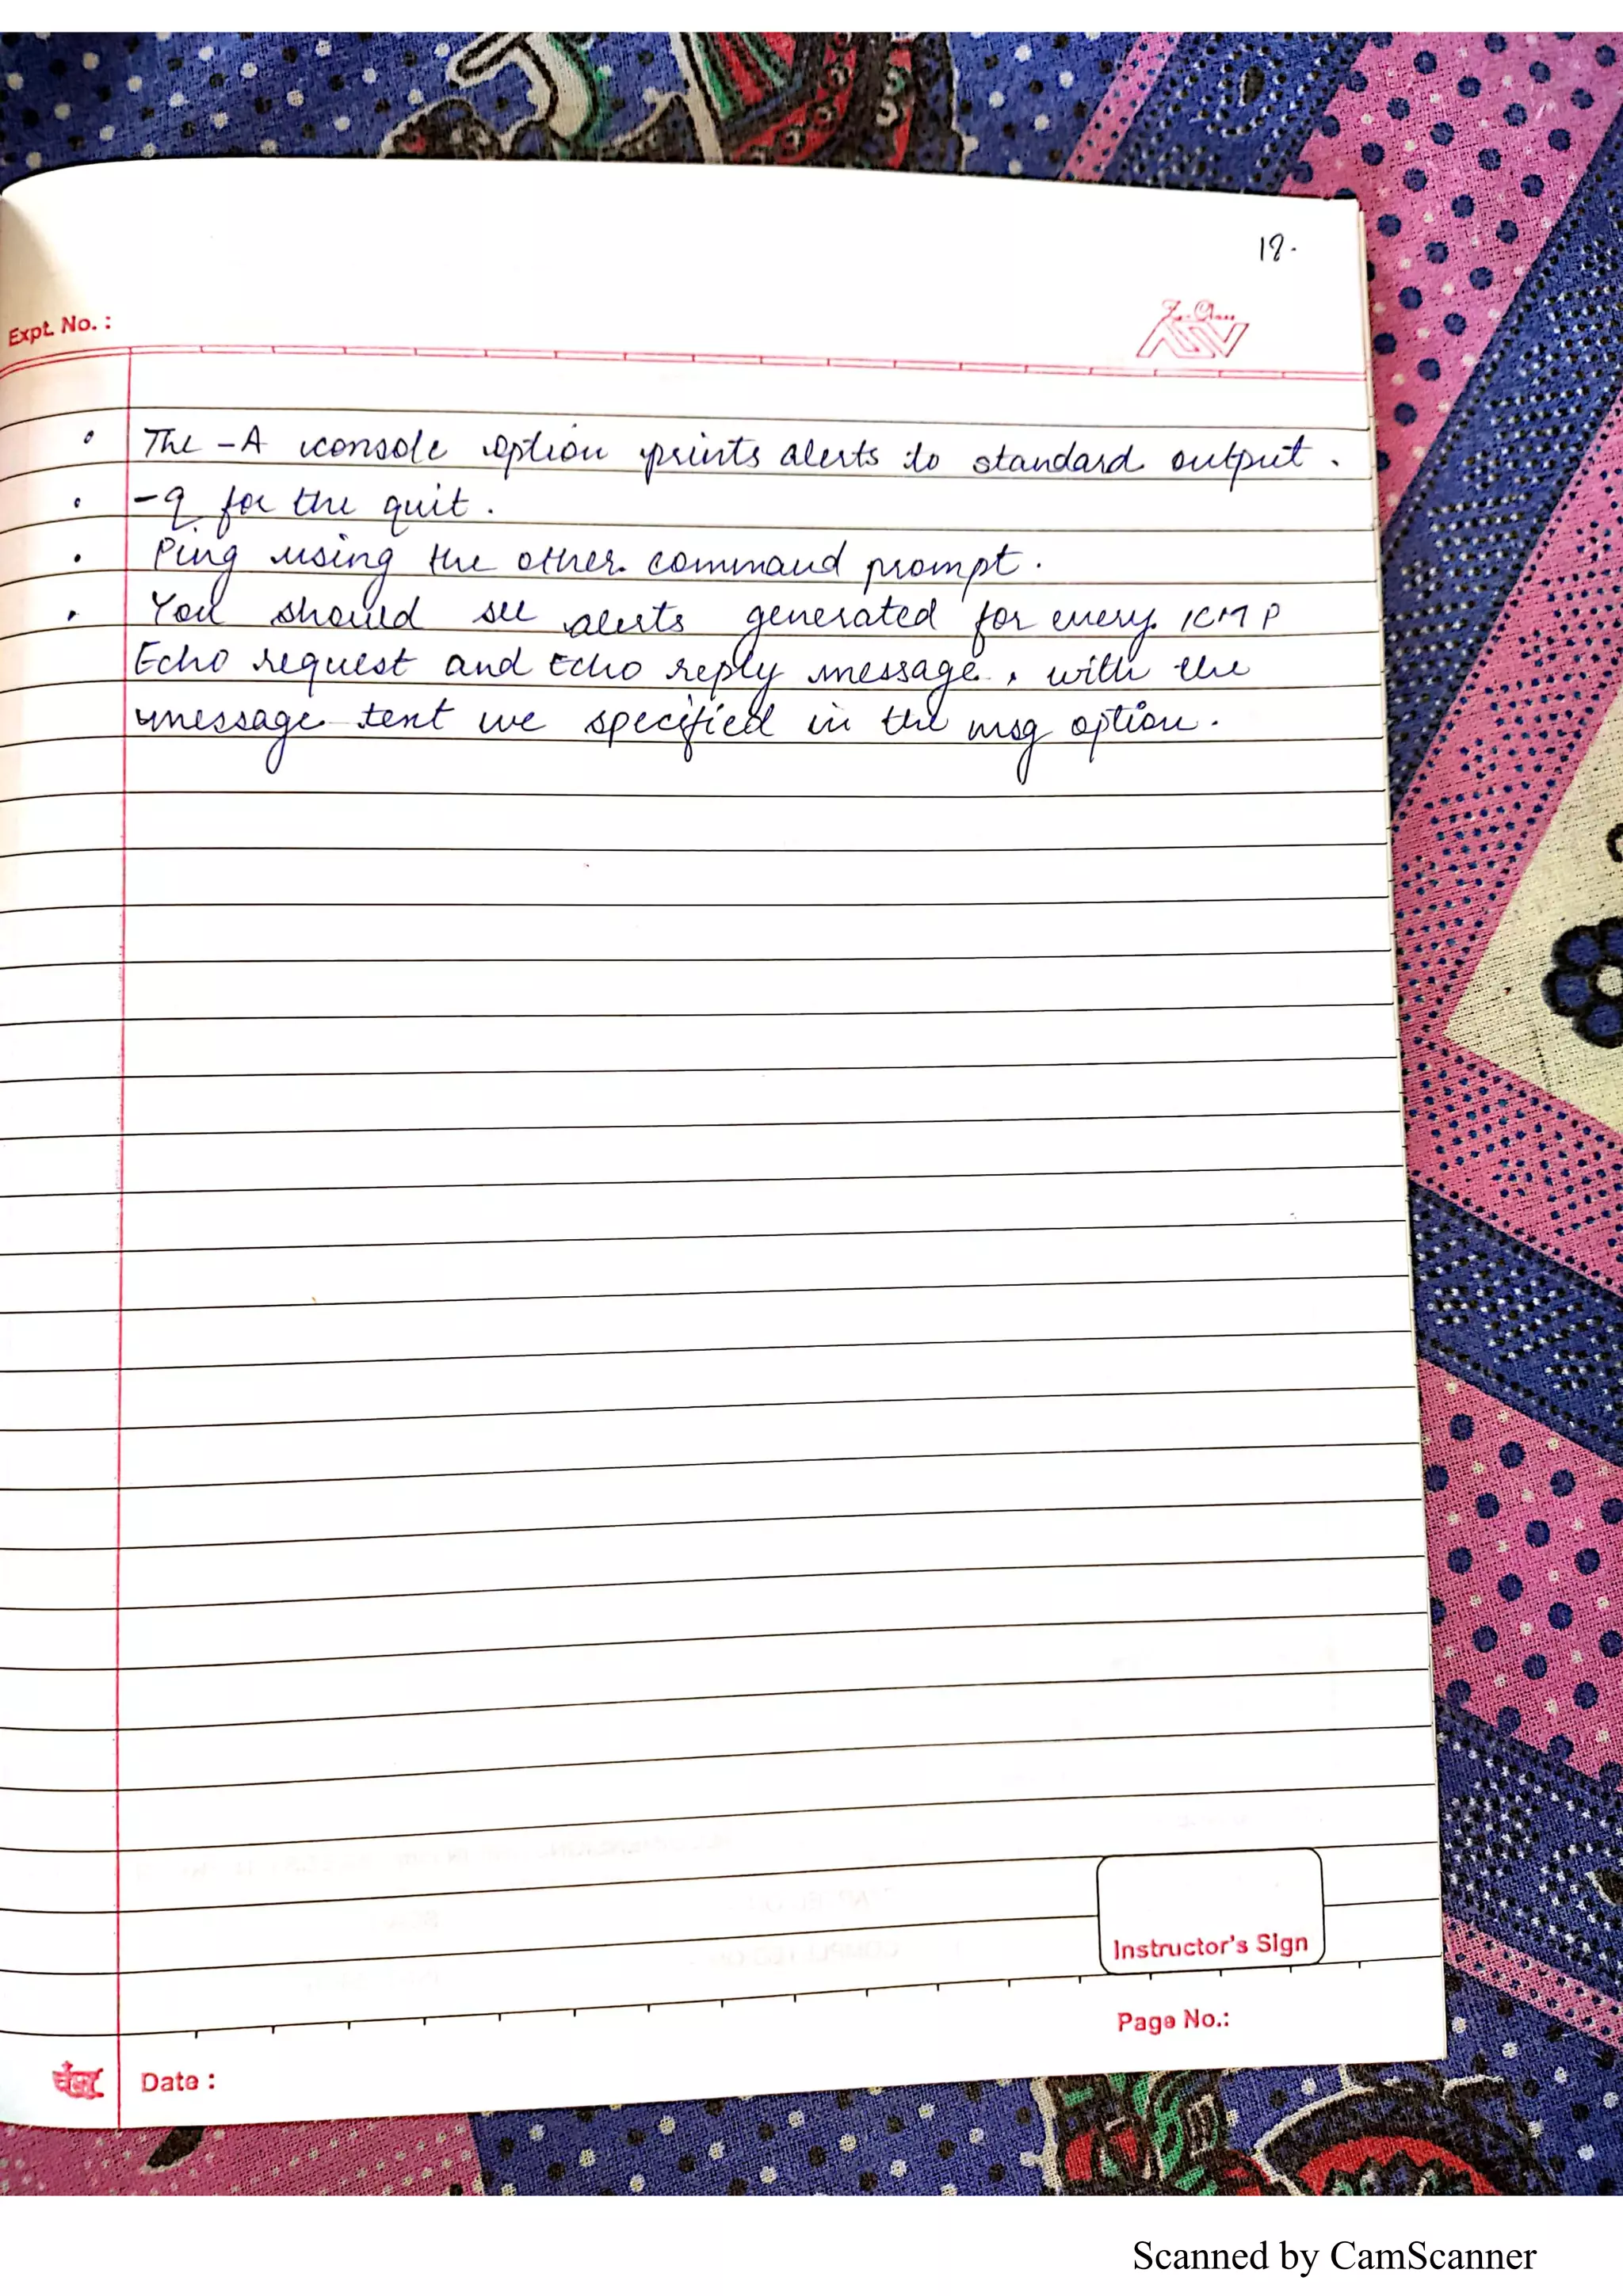 18.
Expt. No. :
• The -A console option prints alerts to standard output.
• -q for the quit.
• Ping using the other command prompt.
• You should see alerts generated for every ICMP
Echo request and Echo reply message, with the
message text we specified in the msg option.
Instructor's Sign
Page No.:
Date :
Scanned by CamScanner